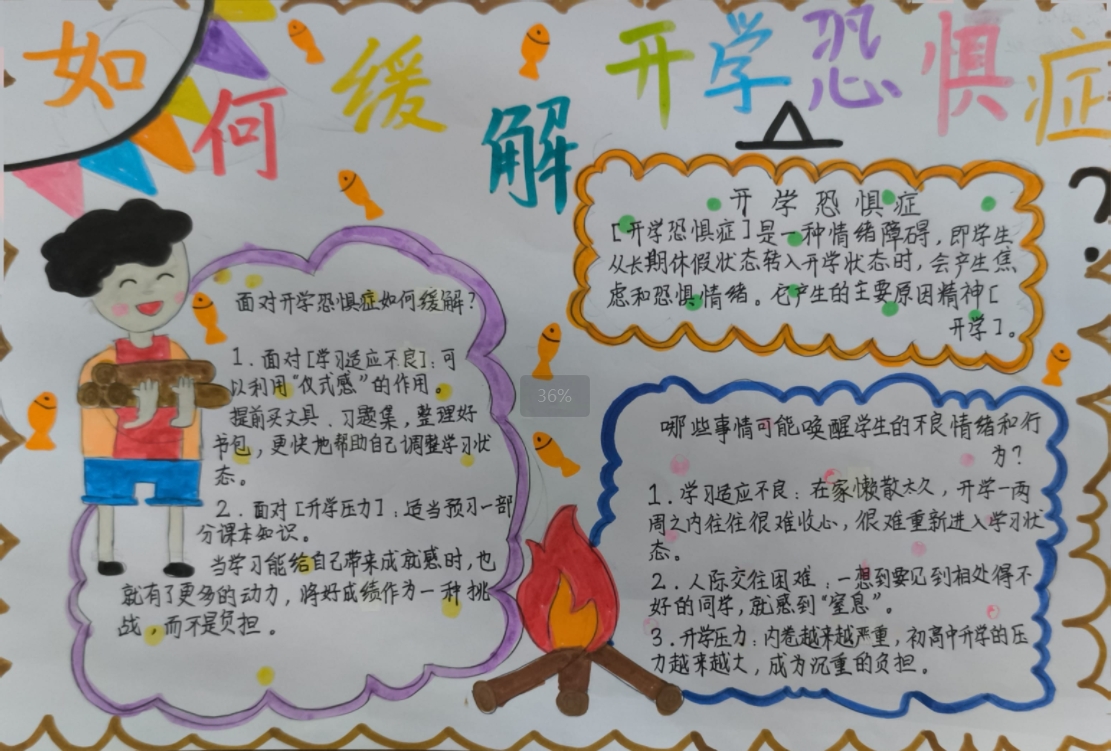 如何缓解开学恐惧症?
开学恐惧症
[开学恐惧症]是一种情绪障碍,即学生
从长期休假状态转入开学状态时,会产生焦
虑和恐惧情绪。它产生的主要原因精神[
开学]。
面对开学恐惧症如何缓解?
1.面对[学习适应不良]:可
以利用“仪式感”的作用。
提前买文具、习题集,整理好
书包,更快地帮助自己调整学习状
态。
2.面对[开学压力]:适当预习一部
分课本知识。
当学习能给自己带来成就感时,也
就有了更多的动力,将好成绩作为一种挑
战,而不是负担。
哪些事情可能唤醒学生的不良情绪和行
为?
1.学习适应不良:在家懒散太久,开学一两
周之内往往很难收心,很难重新进入学习状
态。
2.人际交往困难:一想到要见到相处得不
好的同学,就感到“窒息”。
3.开学压力:内卷越来越严重,初高中升学的压
力越来越大,成为沉重的负担。
36%